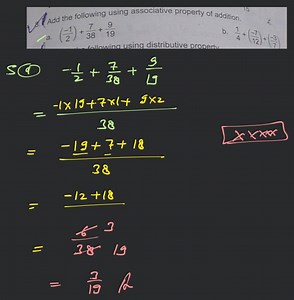 Add the following using associative property of addition.
a. (-1/2) + 7/38 + 9/19 b. 1/4 + (-7/12) +
following using distributive property
5 (a) -1/2 + 7/38 + 9/19
= -1×19+7×1+ 9×2 / 38
= -19 + 7 + 18 / 38
= -12 +18
= 6 3 / 38 19
= 3/19
xxxxx